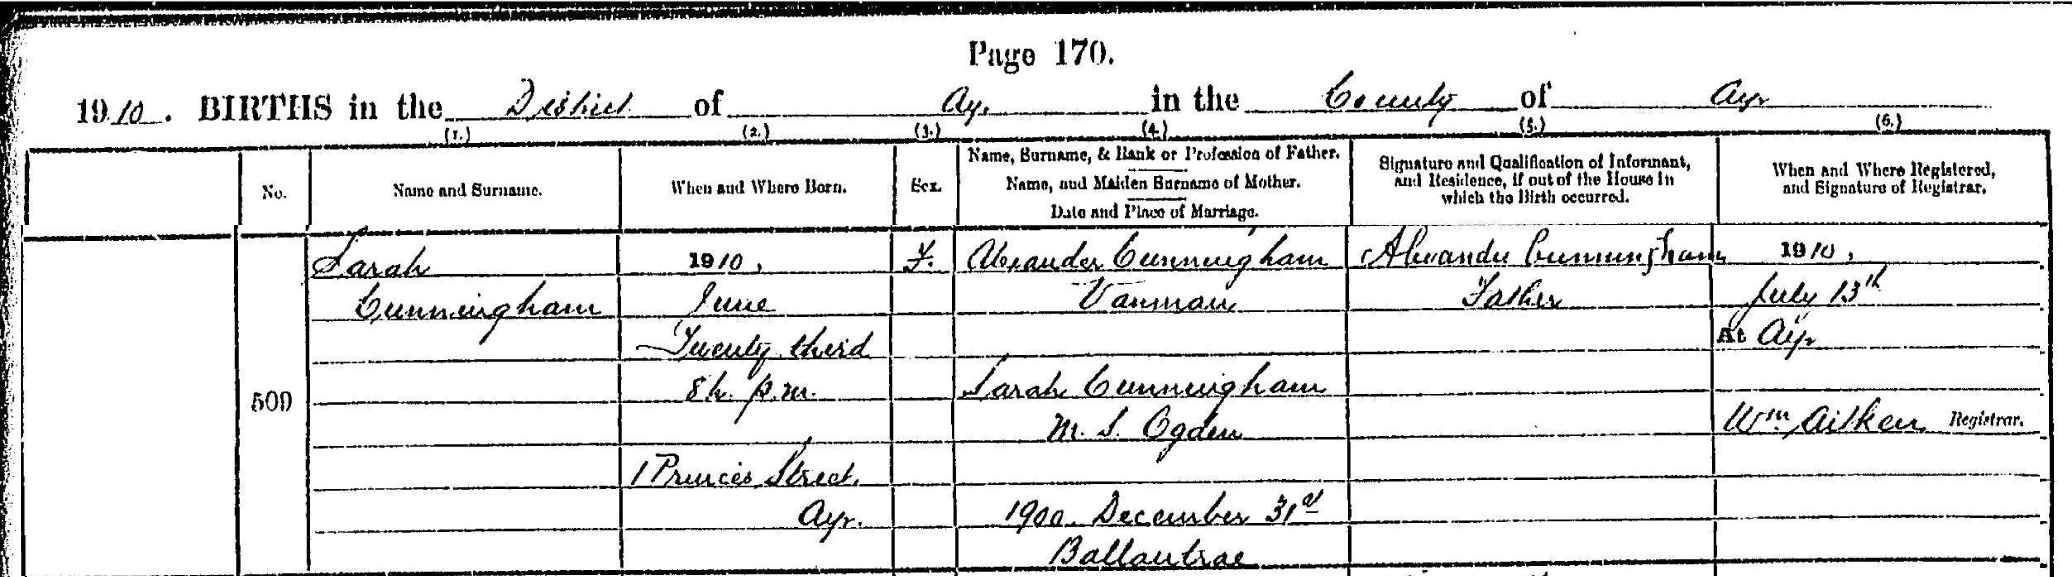 Page 170.
1910. BIRTHS in the District of Ayr in the County of Ayr
(1.) (2.) (3.) (4.) (5.) (6.)
No.
Name and Surname.
When and Where Born.
Sex.
Name, Surname, & Rank or Profession of Father.
Name, and Maiden Surname of Mother.
Date and Place of Marriage.
Signature and Qualification of Informant,
and Residence, if out of the House in
which the Birth occurred.
When and Where Registered,
and Signature of Registrar.
509
Sarah
Cunningham
1910,
June
Twenty third
8h. p.m.
1 Princes Street,
Ayr.
F.
Alexander Cunningham
Vanman
Sarah Cunningham
M. S. Ogden
1900. December 31st
Ballantrae
Alexander Cunningham
Father
1910,
July 13th
At Ayr
Wm Aitken Registrar.